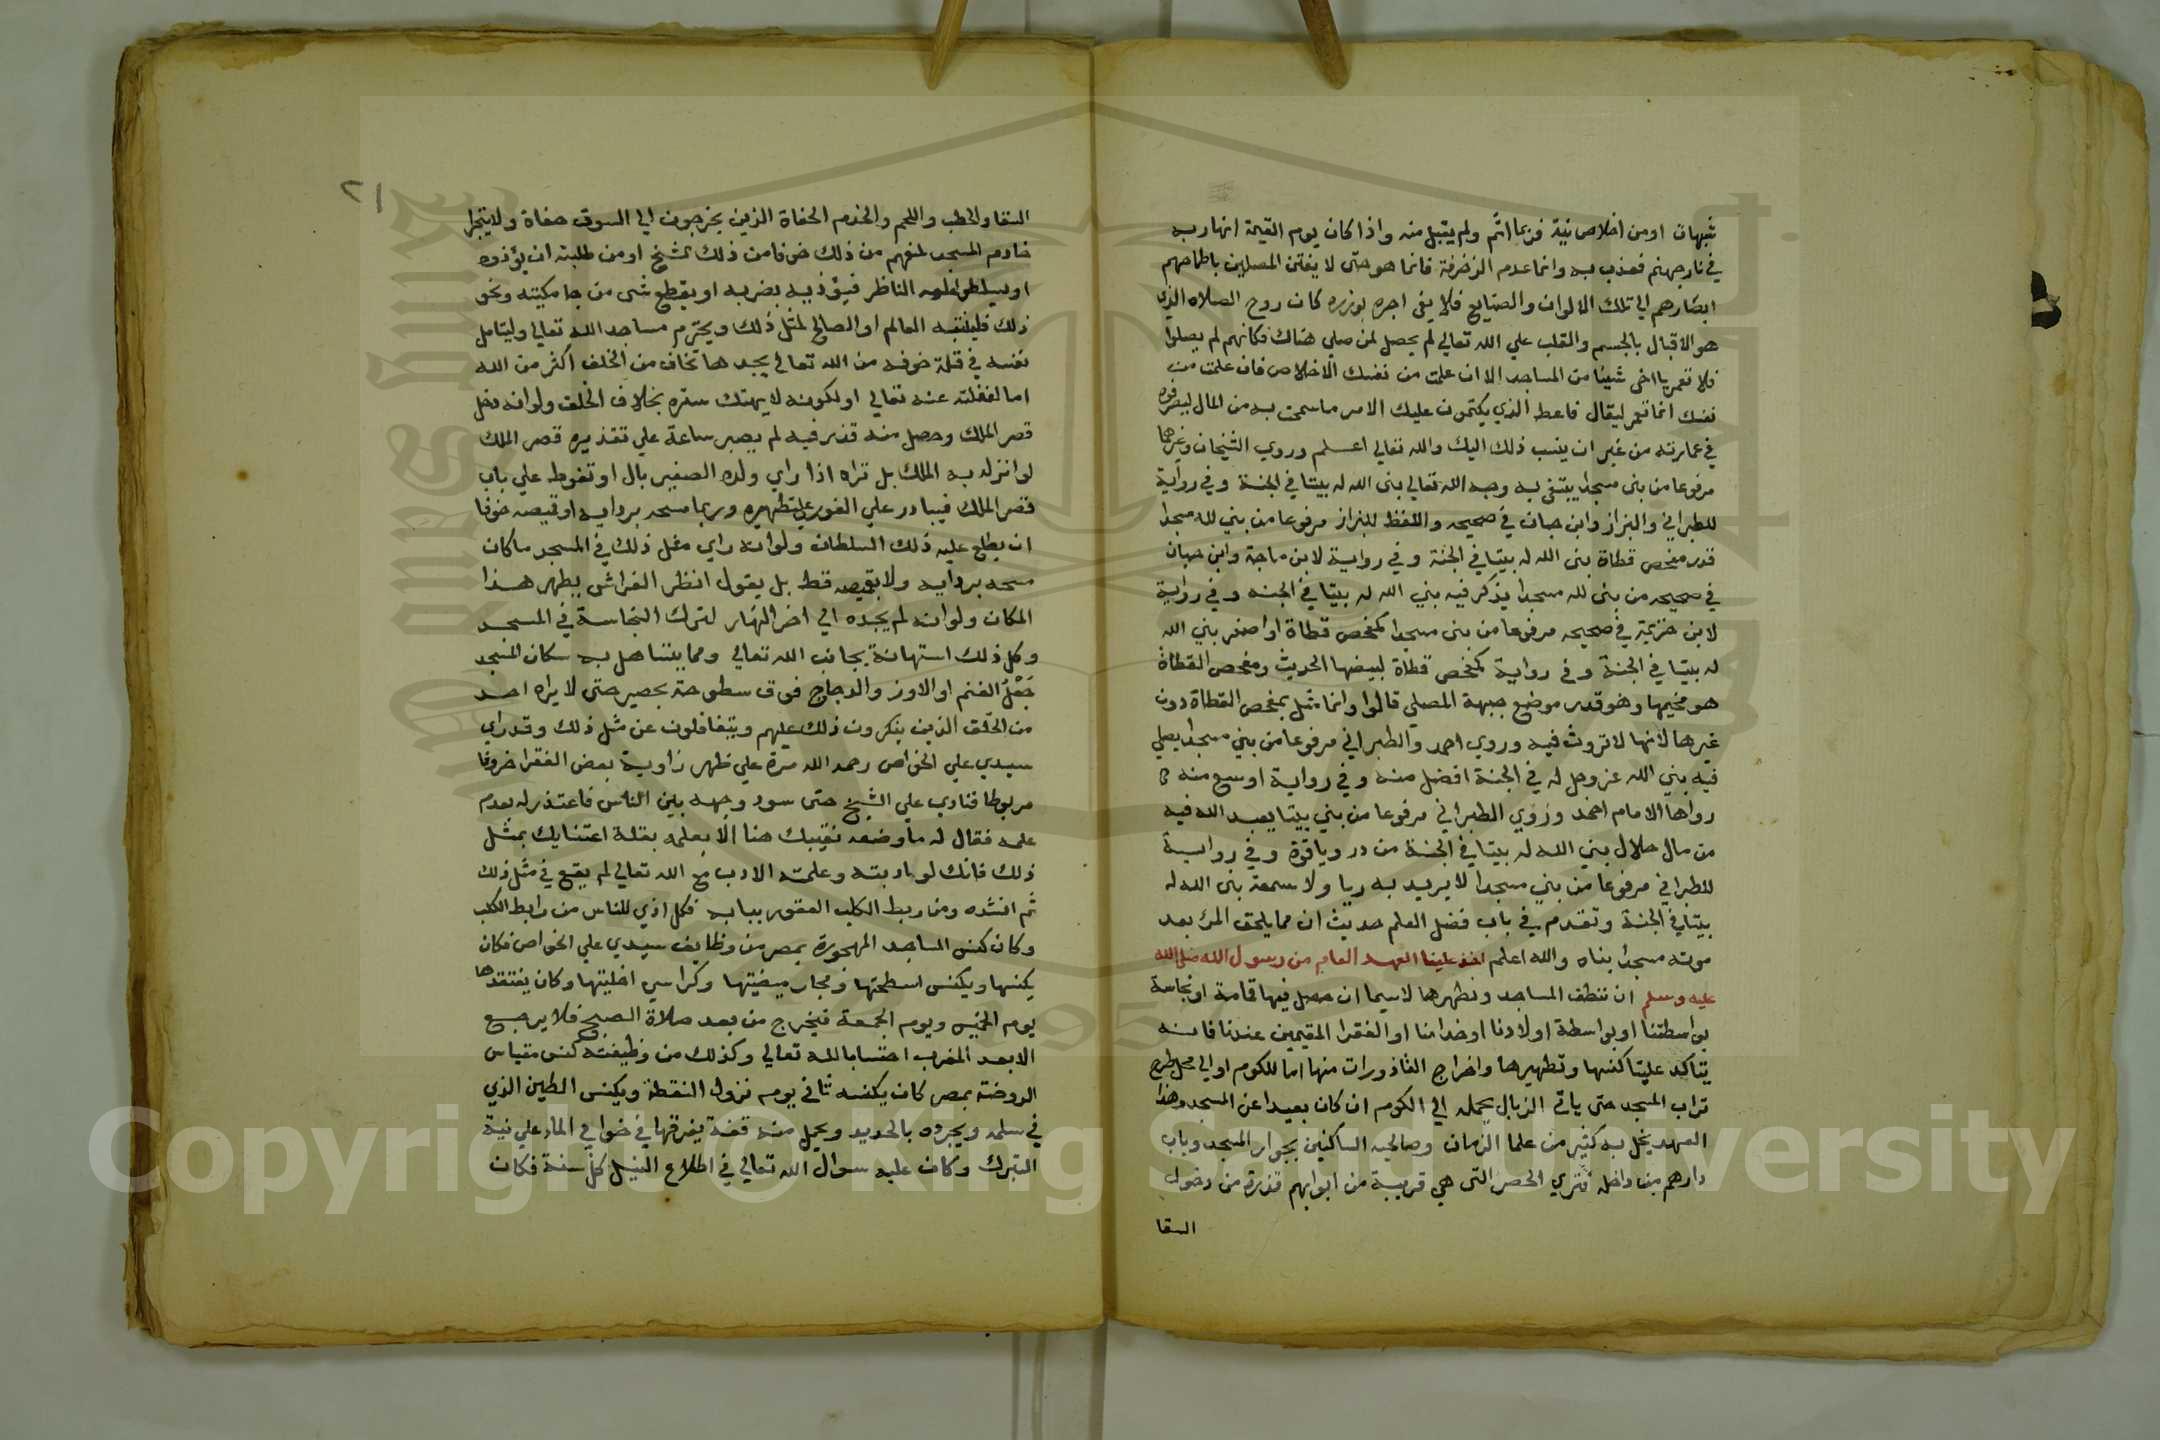 شبهات او من اخلاص نية فربما اثم ولم يقبل منه واذا كان يوم القيمة انهار به
في نار جهنم فعذب به وانما عدم الزخرفة فانما هو حتى لا يفتن المصلين باطماحهم
ابصارهم الي تلك الالوان والصنايع فلا يفي اجره بوزره كان روح الصلاه الذي
هو الاقبال بالجسم والقلب علي الله تعالي لم يحصل لمن صلي هناك فكانهم لم يصلوا
فلا تعمر يا اخي شيئا من المساجد الا ان علمت من نفسك الاخلاص فان علمت من
نفسك انما تعمر ليقال فاعط الذي يكتمون عليك الامر ما سمحت به من المال ليصرفوه
في عمارته من غير ان ينسب ذلك اليك والله تعالي اعلم وروي الشيخان وغيرهما
مرفوعا من بنى مسجدا يبتغي به وجه الله تعالي بنى الله له بيتا في الجنة وفي رواية
للطبراني والبزاز وابن حبان في صحيحه واللفظ للبزاز مرفوعا من بني لله مسجدا
قدر مفحص قطاة بنى الله له بيتا في الجنة وفي رواية لابن ماجة وابن حبان
في صحيحه من بنى لله مسجدا يذكر فيه بني الله له بيتا في الجنه وفي رواية
لابن خزيمة في صحيحه مرفوعا من بنى مسجدا كمفحص قطاة او اصغر بني الله
له بيتا في الجنة وفي رواية كمفحص قطاة لبيضها الحديث ومفحص القطاة
هو مخيمها وهو قدر موضع جبهة المصلي قالوا وانما مثل بمفحص القطاة دون
غيرها لانها لا تروث فيه وروي احمد والطبراني مرفوعا من بني مسجدا يصلي
فيه بني الله عز وجل له في الجنة افضل منه وفي رواية اوسع منه
رواها الامام احمد وروي الطبراني مرفوعا من بني بيتا يعبد الله فيه
من مال حلال بني الله له بيتا في الجنة من در وياقوة وفي رواية
للطبراني مرفوعا من بني مسجدا لا يريد به ريا ولا سمعة بنى الله له
بيتا في الجنة وتقدم في باب فضل العلم حديث ان مما يلحق المرء بعد
موته مسجدا بناه والله اعلم اخذ علينا العهد العام من رسول الله صلى الله
عليه وسلم ان ننظف المساجد ونطهرها لاسيما ان حصل فيها قمامة او نجاسة
بواسطتنا او بواسطة اولادنا او خدامنا او الفقرا المقيمين عندنا فانه
يتاكد علينا كنسها وتطهيرها واخراج القاذورات منها اما للكوم او الي محل طرح
تراب المسجد حتى ياتي الزبال يحمله الي الكوم ان كان بعيدا عن المسجد وهذا
العهد يخل به كثير من علما الزمان وصالحيه الساكنين بجوار المسجد وباب
دارهم من داخله فترى الحصر التي هي قريبة من ابوابهم قذرة من دخول
السقا
٢١
السقا والحطب واللحم والخدم الحفاة الذين يخرجون الي السوق حفاة ولا يتجرا
خادم المسجد لمنعهم من ذلك خوفا من ذلك الشيخ او من طلبته ان يؤذوه
او يسلطوا عليه الناظر فيؤذيه بضربه او بقطع شي من جامكيته ونحو
ذلك فليتنبه العالم او الصالح لمثل ذلك ويحترم مساجد الله تعالي وليتامل
نفسه في قلة خوفه من الله تعالي يجدها تخاف من الخلف اكثر من الله
اما لغفلته عنه تعالي او لكونه لا يهتك ستره بخلاف الخلق ولو انه دخل
قصر الملك وحصل منه قذر فيه لم يصبر ساعة علي تقذيره قصر الملك
لو انزله به الملك بل تراه اذا راي ولده الصغير بال او تغوط علي باب
قصر الملك فيبادر علي الفور علي تطهيره وربما مسحه بردايه او قميصه خوفا
ان يطلع عليه ذلك السلطان ولو انه راي مثل ذلك في المسجد ما كان
مسحه بردايه ولا بقميصه قط بل يقول انظر الفراش يطهر هذا
المكان ولو انه لم يجده الي اخر النهار لترك النجاسة في المسجد
وكل ذلك استهانة بجانب الله تعالي ومما يتساهل به سكان المسجد
جعل الغنم او الاوز والدجاج فوق سطوحه بحصير حتى لا يراه احد
من الخلق الذين ينكرون ذلك عليهم ويتغافلون عن مثل ذلك وقد راي
سيدي علي الخواص رحمه الله مرة علي ظهر زاوية بعض الفقرا خروفا
مربوطا فنادي علي الشيخ حتى سود وجهه بين الناس فاعتذر له بعدم
علمه فقال له ما وضعه نقيبك هنا الا بعلمه بقلة اعتنايك بمثل
ذلك فانك لو ادبته وعلمته الادب مع الله تعالي لم يقع في مثل ذلك
ثم انشده ومن ربط الكلب العقور ببابه فكل اذي للناس من رابط الكلب
وكان كنس المساجد المهجورة بمصر من وظايف سيدي علي الخواص فكان
يكنسها ويكنس اسطحتها ومجار ميضيتها وكراسي اخليتها وكان يفتقدها
يوم الخميس ويوم الجمعة فيخرج من بعد صلاة الصبح فلا يرجع
الا بعد المغرب احتسابا لله تعالي وكذلك من وظيفته كنس مقياس
الروضة بمصر كان يكنسه ثاني يوم نزول النقطة ويكنس الطين الذي
في سلمه ويجرده بالحديد ويحمل منه قفة يفرقها في خوابي الماء علي نية
التبرك وكان عليه سوال الله تعالي في اطلاع النيل كل سنة فكان
Copyright © King Saud University